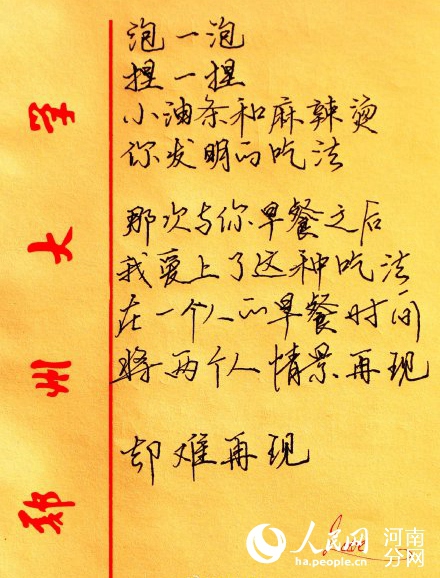 泡一泡
捏一捏
小油条和麻辣烫
你发明的吃法
那次与你早餐之后
我爱上了这种吃法
在一个人的早餐时间
将两个人情景再现
却难再现
郑州大学
Love
人民网
河南分网
ha.people.cn